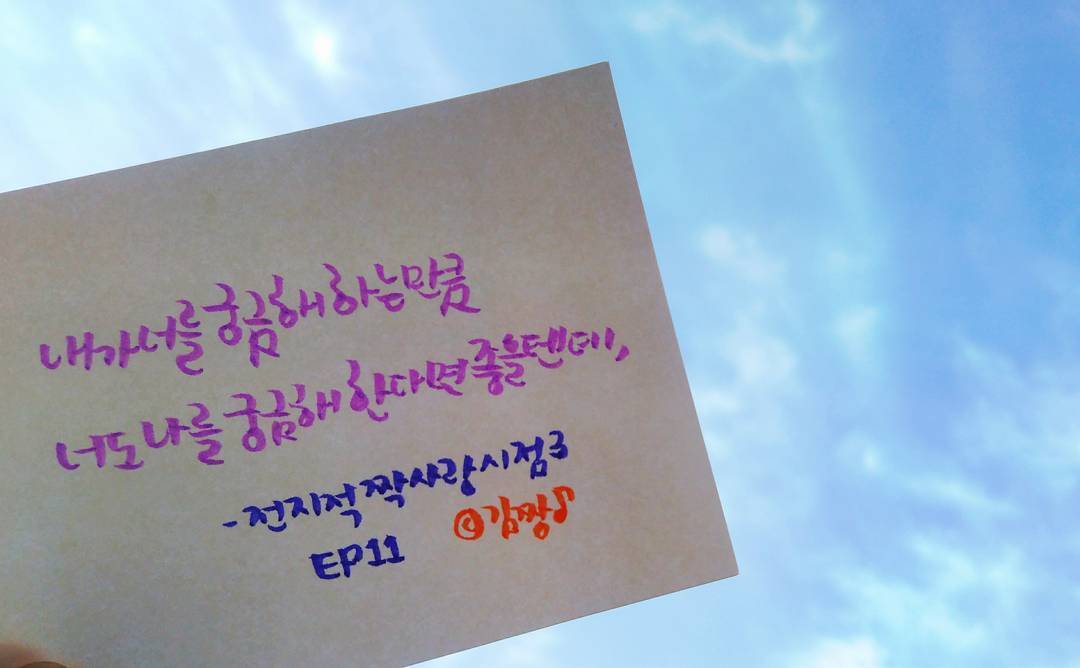 내가 너를 궁금해 하는만큼
너도 나를 궁금해 한다면 좋을텐데,
- 전지적 짝사랑 시점3
EP11
@김짱♪